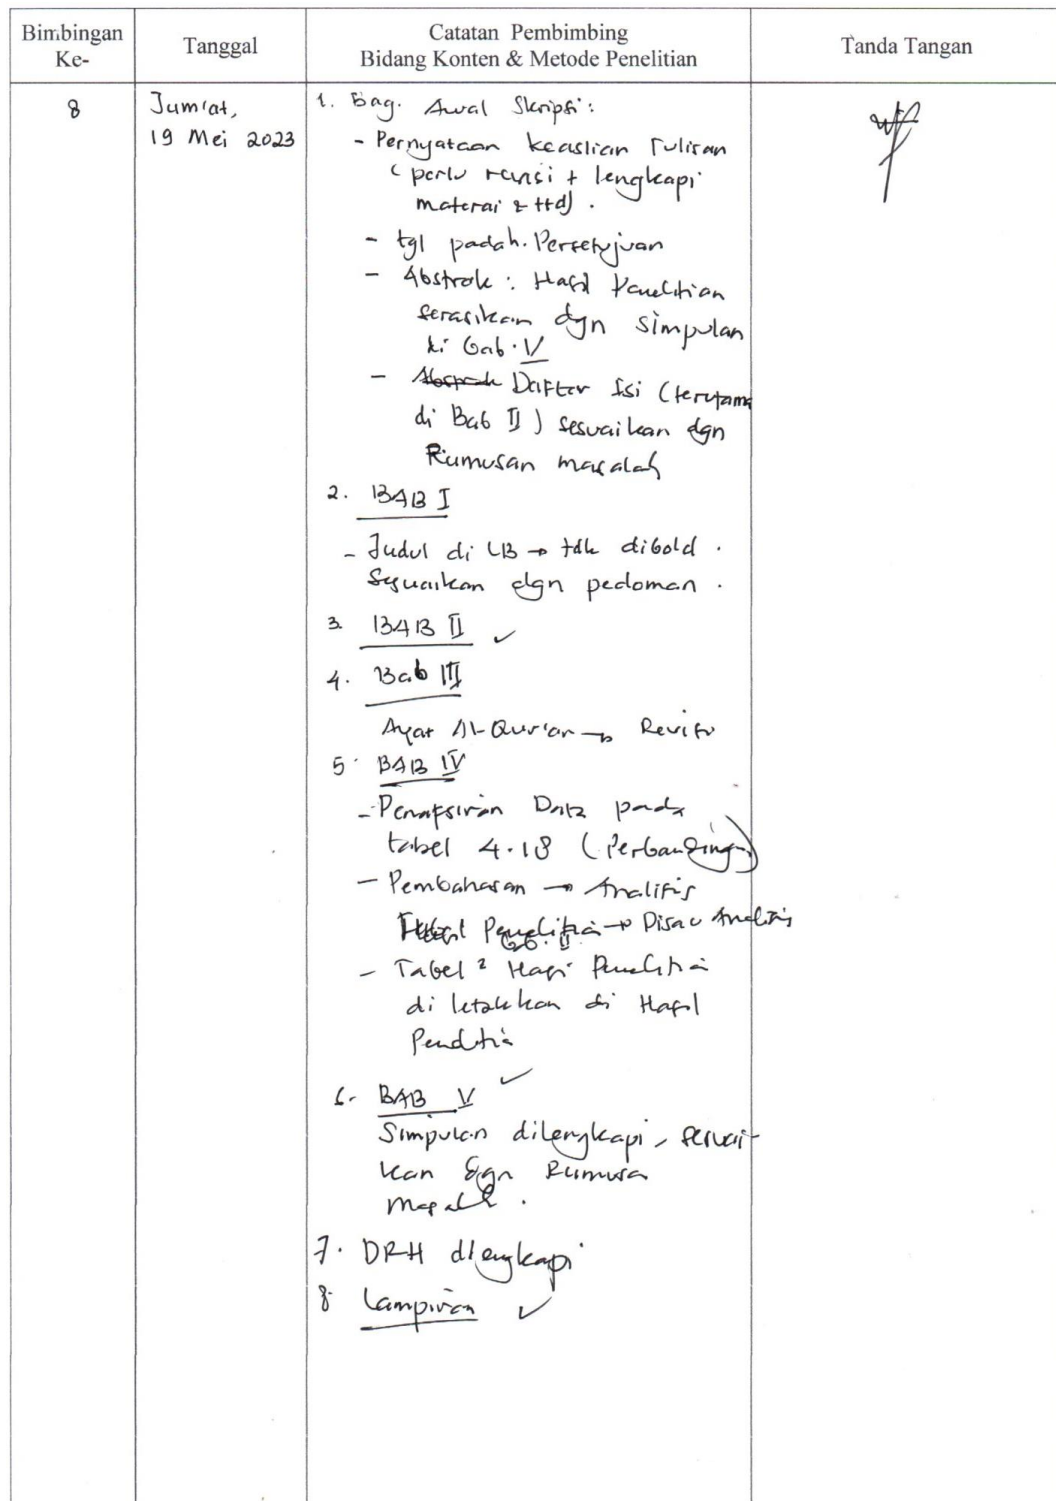 Bimbingan
Ke-
Tanggal
Catatan Pembimbing
Bidang Konten & Metode Penelitian
Tanda Tangan
8
Jum'at,
19 Mei 2023
1. Bag. Awal Skripsi:
- Pernyataan keaslian Tulisan
(perlu revisi + lengkapi
materai & ttd).
- tgl pada h. Persetujuan
- Abstrak : Hasil Penelitian
serasikan dgn simpulan
di bab. V
- Daftar Isi (terutama
di Bab II) sesuaikan dgn
Rumusan masalah
2. BAB I
- Judul di LB → tdk dibold.
Sesuaikan dgn pedoman.
3. BAB II ✓
4. Bab III
Ayat Al-Qur'an → Revisi
5. BAB IV
- Penafsiran Data pada
tabel 4.18 (Perbandingan)
- Pembahasan → Analisis
Hasil Penelitian →
- Tabel² Hasil Penelitia
di letakkan di Hasil
Penelitia
6. BAB V ✓
Simpulan dilengkapi, sesuai-
kan dgn Rumusa
masalah.
7. DRH dlengkapi
8 Lampiran ✓